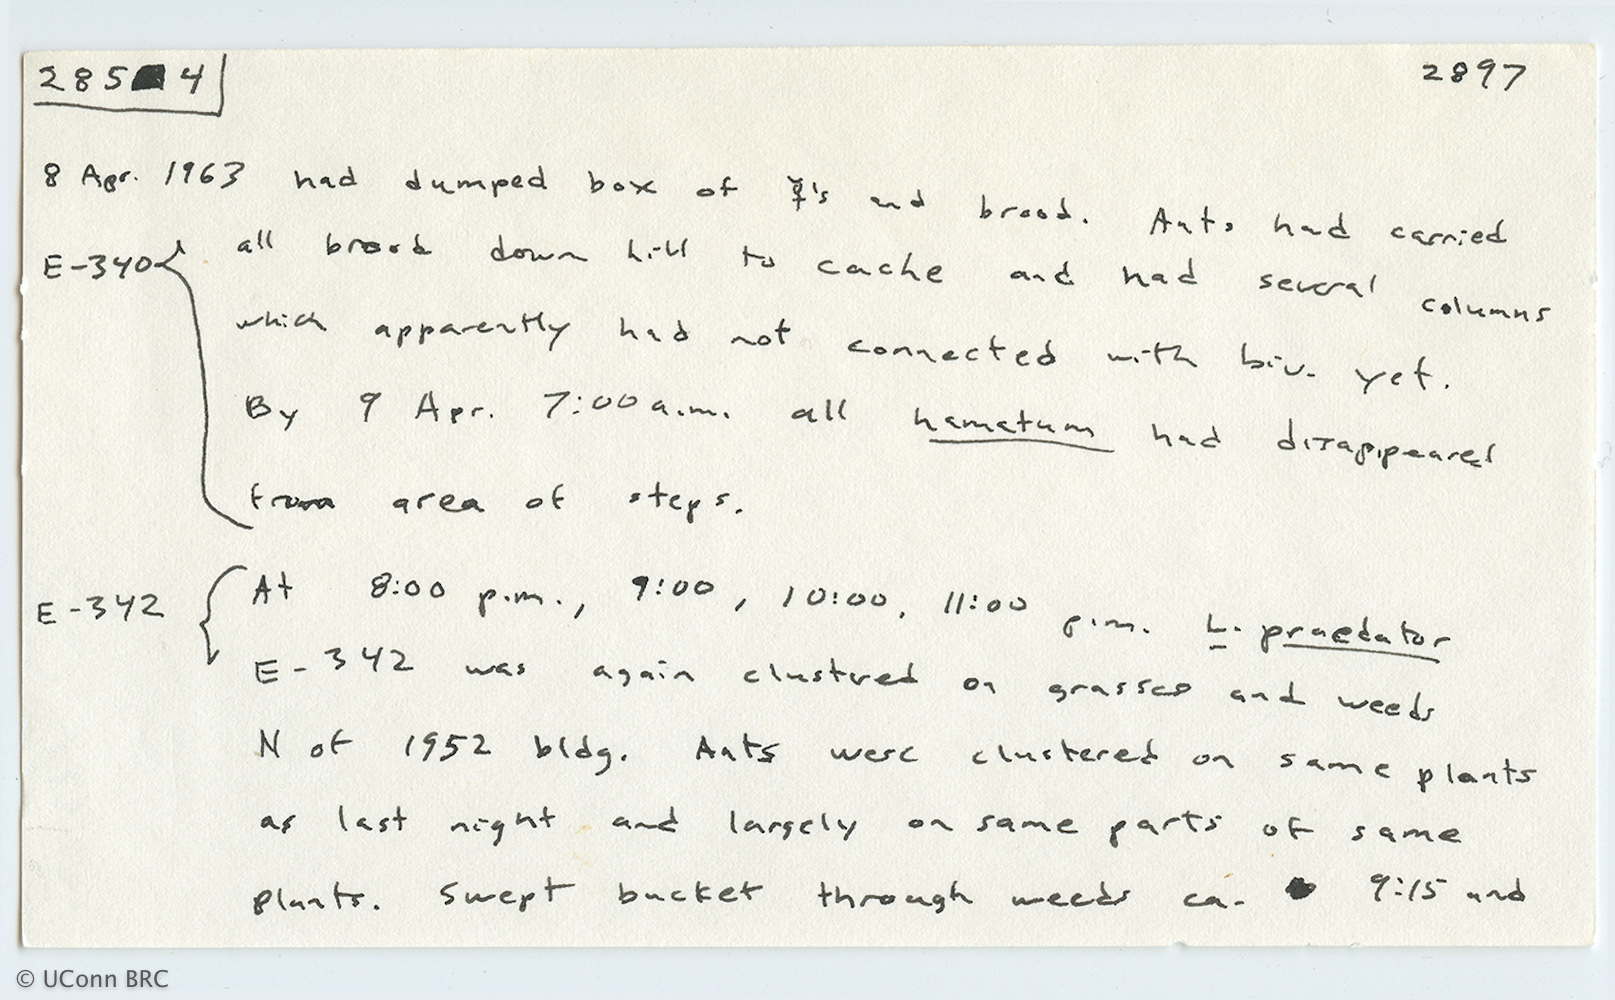 285■4
2897
8 Apr. 1963 had dumped box of ☿'s and brood. Ants had carried
E-340 all brood down hill to cache and had several columns
which apparently had not connected with biv. yet.
By 9 Apr. 7:00 a.m. all hamatum had disappeared
from area of steps.
E-342 At 8:00 p.m., 9:00, 10:00, 11:00 p.m. L. praedator
E-342 was again clustered on grasses and weeds
N of 1952 bldg. Ants were clustered on same plants
as last night and largely on same parts of same
plants. Swept bucket through weeds ca. 9:15 and
© UConn BRC